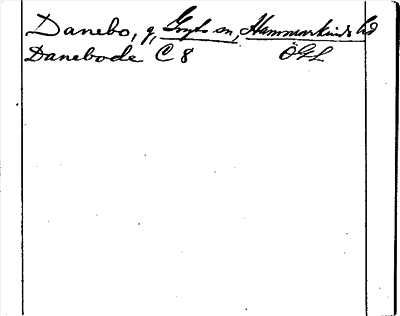 Danebo, g, Gryts sn, Hammarkinds hd
Danebode C 8 ÖGL